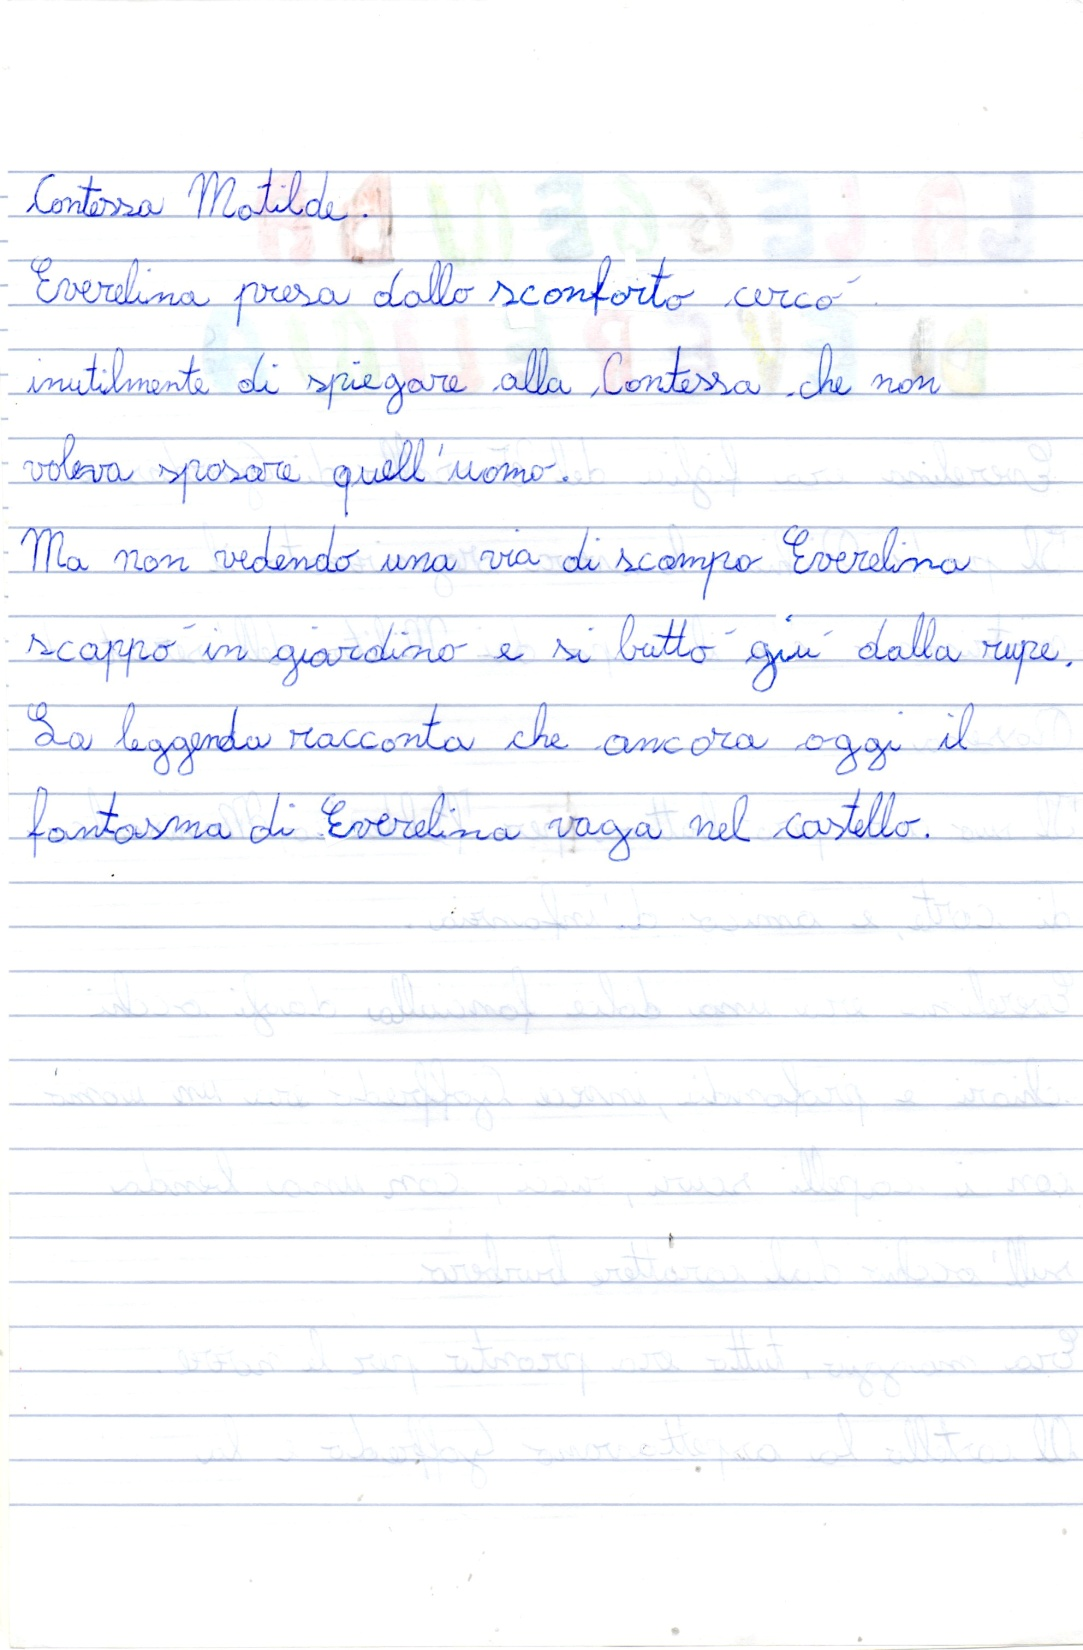 Contessa Matilde.
Everelina presa dallo sconforto cercó
inutilmente di spiegare alla Contessa che non
voleva sposare quell'uomo.
Ma non vedendo una via di scampo Everelina
scappó in giardino e si buttó giú dalla rupe.
La leggenda racconta che ancora oggi il
fantasma di Everelina vaga nel castello.